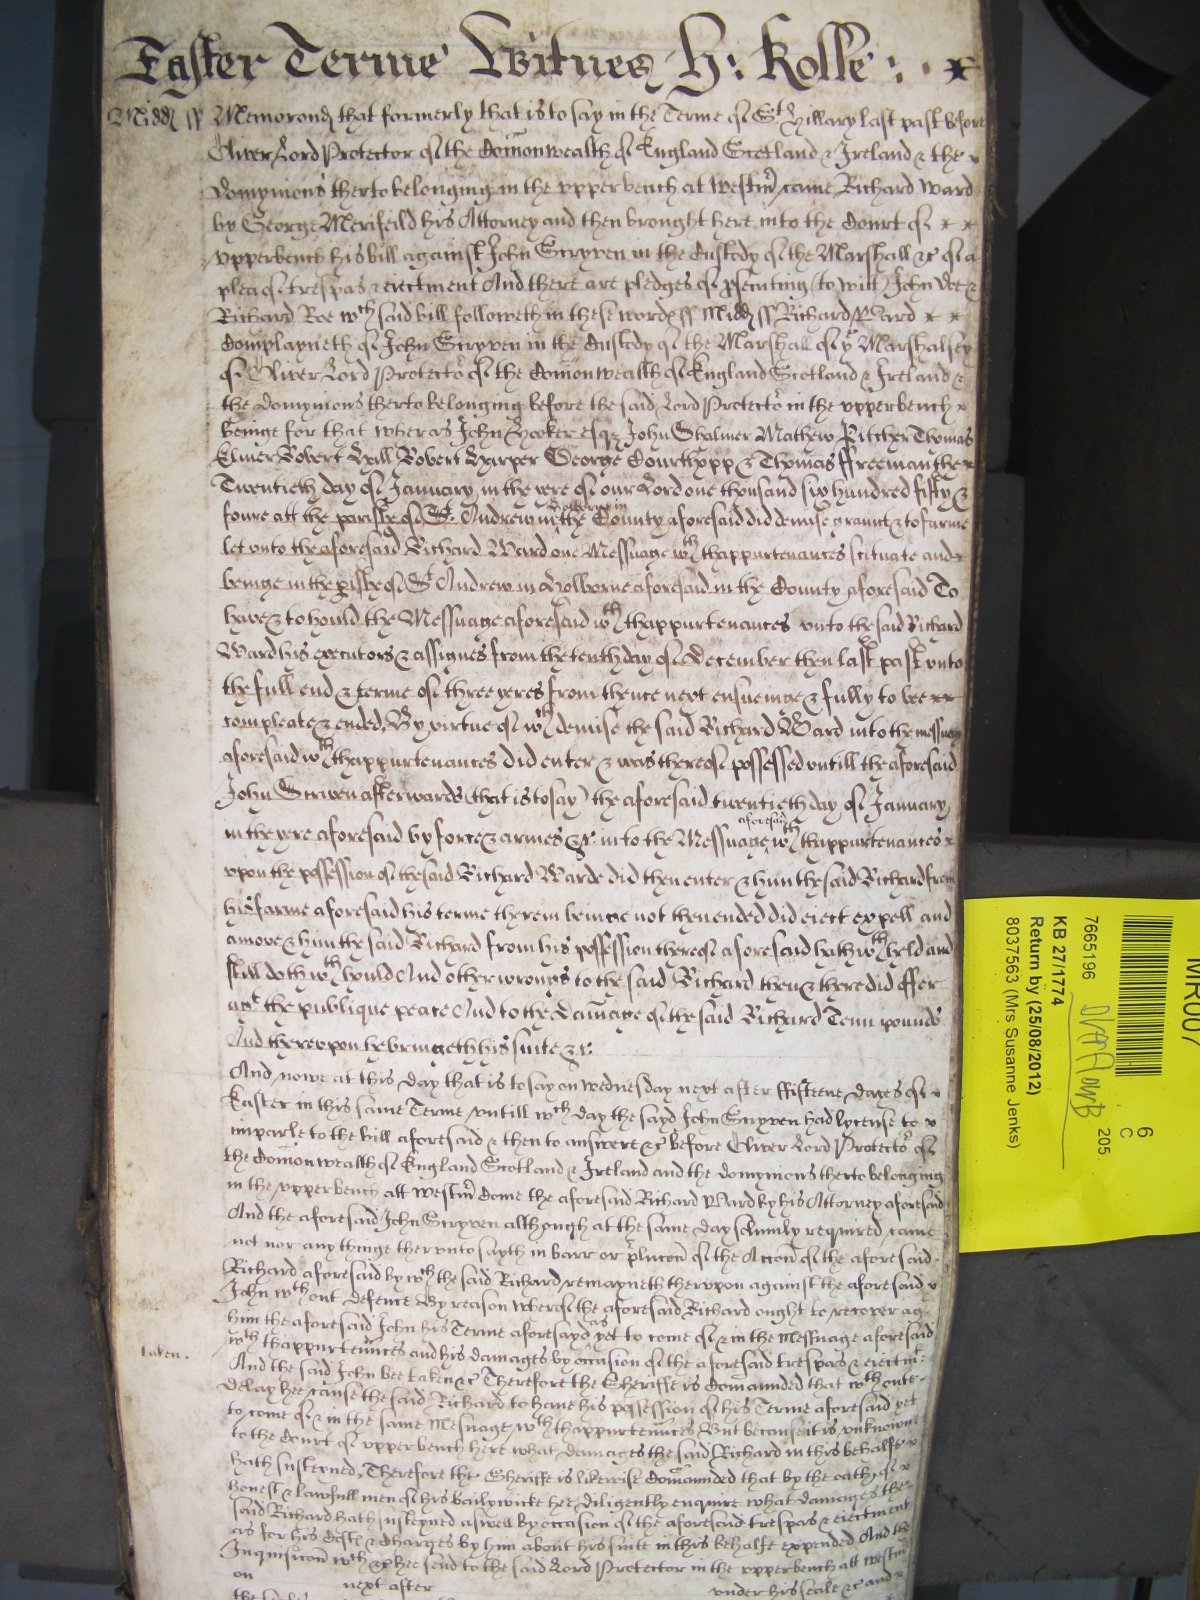 Easter Terme Witnes H: Rolle :
Midd ss Memorand that formerly that is to say in the Terme of St Hillary last past before
Oliver Lord Protector of the Comonwealth of England Scotland & Ireland & the
Domynions therto belonging in the upper bench at Westm came Richard Ward
by George Merifeild his Attorney and then brought here into the Court of
upperbench his bill against John Scryven in the Custody of the Marshall &c of a
plea of trespas & eiectment And there are pledges of psecuting (to witt) John Doe &
Richard Roe wch said bill followeth in these words ss Midd ss Richard Ward
Complayneth of John Scryven in the Custody of the Marshall of ye Marshalsey
of Oliver Lord Protector of the Comonwealth of England Scotland & Ireland &
the Domynions therto belonging before the said Lord Protector in the upperbench
beinge for that wheras John Hooker esqr John Shalmer Mathew Pitcher Thomas
Elmer Robert Hill Robert Harper George Courthopp & Thomas ffreeman the
Twentieth day of January in the yere of our Lord one thousand six hundred fifty &
foure att the parishe of St Andrew in the County aforesaid did demise graunt & to farme
let unto the aforesaid Richard Ward one Messuage wth thappurtenances scituate and
beinge in the pishe of St Andrew in Holborne aforesaid in the County aforesaid To
have & to hould the Messuage aforesaid wth thappurtenances unto the said Richard
Ward his executors & assignes from the tenth day of December then last past unto
the full end & terme of three yeres from thence next ensueinge & fully to bee
compleate & ended, By virtue of wch demise the said Richard Ward into the messuage
aforesaid wth thappurtenances did enter & was thereof possessed untill the aforesaid
John Scriven afterwards (that is to say) the aforesaid twentieth day of January
in the yere aforesaid by force & armes &c: into the Messuage aforesaid wth thappurtenances
upon the possession of the said Richard Warde did then enter & him the said Richard from
his farme aforesaid his terme therein beinge not then ended did eiect expell and
amove & him the said Richard from his possession thereof aforesaid hath wth held and
still doth wth hould And other wrongs to the said Richard then & there did offer
agt the publique peace And to the damage of the said Richard Tenn pounds
And thereupon he bringeth his suite &c:
And nowe at this day that is to say on wednesday next after ffifteene dayes of
Easter in this same Terme untill wch day the sayd John Scryven had lycense to
imparle to the bill aforesaid & then to answere &c before Oliver Lord Protector of
the Comonwealth of England Scotland & Ireland and the domynions therto belonging
in the upperbench att westm Come the aforesaid Richard Ward by his Attorney aforesaid
And the aforesaid John Scryven although at the same day solemnly required came
not nor any thinge therunto sayth in barr or pclucon of the Accon of the aforesaid
Richard aforesaid by wch the said Richard remayneth therupon against the aforesaid
John wthout defence By reason wherof the aforesaid Richard ought to recover ag
him the aforesaid John his Terme aforesayd as yet to come of & in the Messuage aforesaid
wth thappurtennces and his damages by occasion of the aforesaid trespas & eiectmt
taken.
And the said John bee taken &c Therefore the Sheriffe is Comaunded that wthoute
delay hee cause the said Richard to have his possession of his Terme aforesaid yet
to come of & in the same Messuage wth thappurtennces But because it is unknowne
to the Court of upperbench here what damages the said Richard in this behalfe
hath susteyned, Therefore the Sheriffe is likewise Comaunded that by the oath of
honest & lawfull men of his bailywicke hee diligently enquire what damages the
said Richard hath susteyned aswell by occasion of the aforesaid trespas & eiectment
as for his Costs & Charges by him about his suite in this behalfe expended And the
Inquisicon wch &c hee send to the said Lord Protector in the upperbench att westm
on next after under his seale &c and
MR007
6
C
7665196 205.
KB 27/1774
Return by (25/08/2012)
8037563 (Mrs Susanne Jenks)